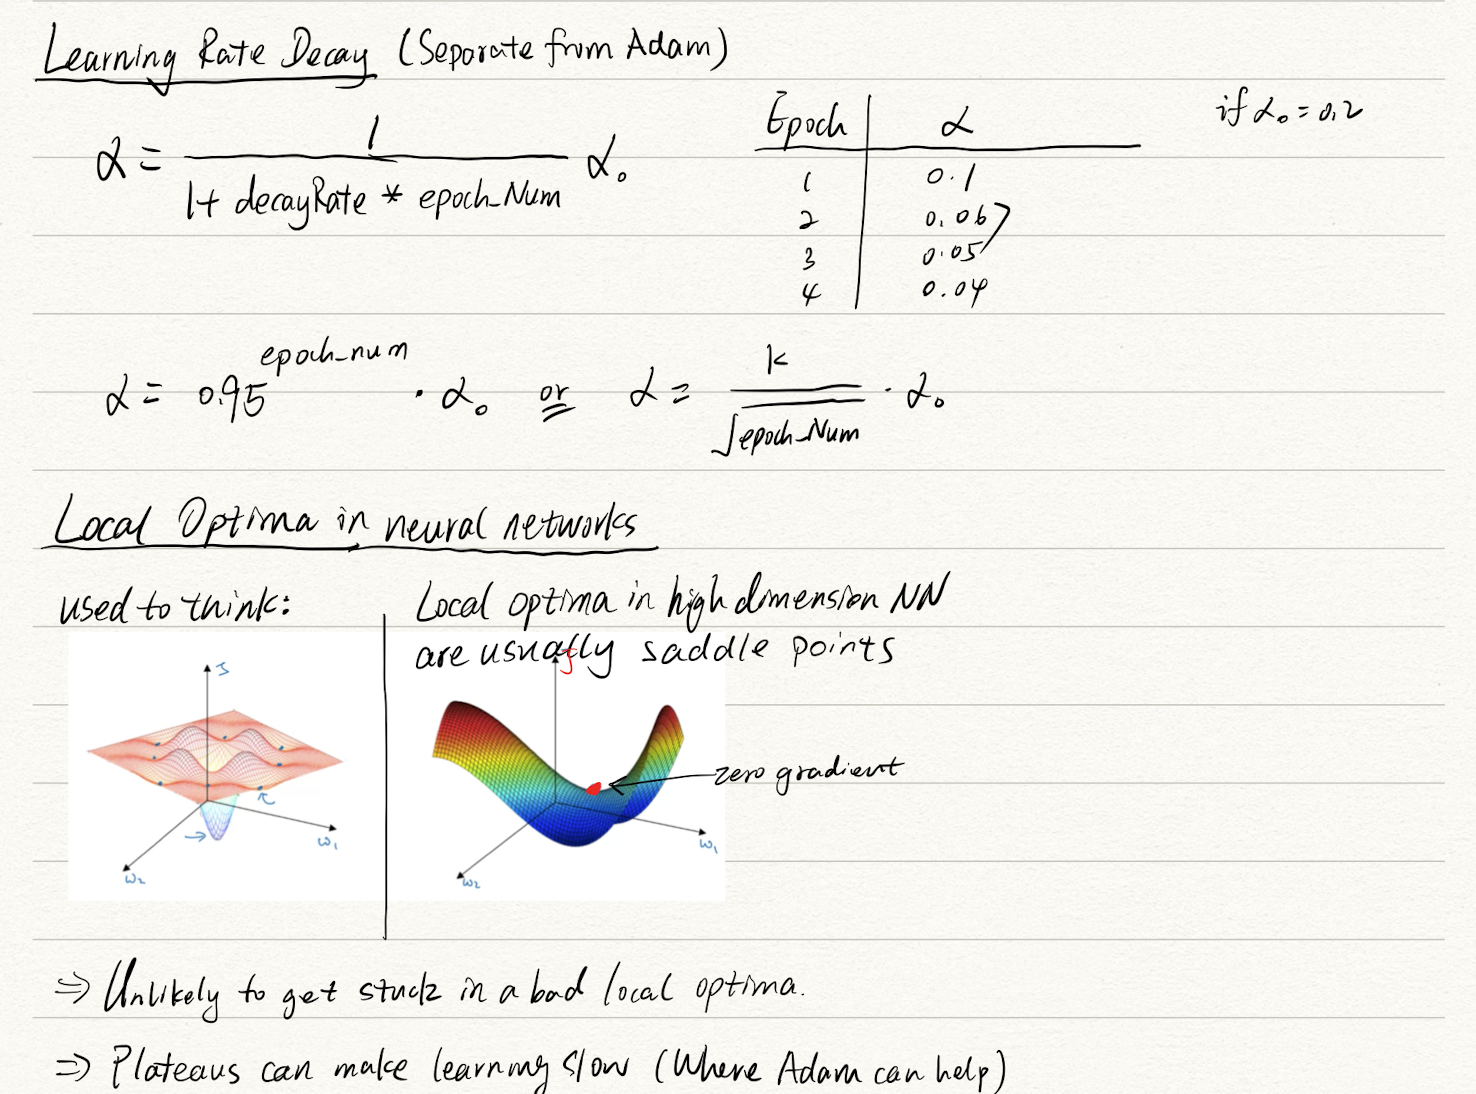 Learning Rate Decay (Separate from Adam)
α = 1 / (1 + decayRate * epoch_Num) α₀
if α₀ = 0.2
Epoch | α
1 | 0.1
2 | 0.06
3 | 0.05
4 | 0.04
α = 0.95^epoch_num · α₀ or α = k / √epoch_Num · α₀
Local Optima in neural networks
used to think:
Local optima in high dimension NN
are usually saddle points
J
w₁
w₂
J
zero gradient
w₁
w₂
⇒ Unlikely to get stuck in a bad local optima.
⇒ Plateaus can make learning slow (Where Adam can help)